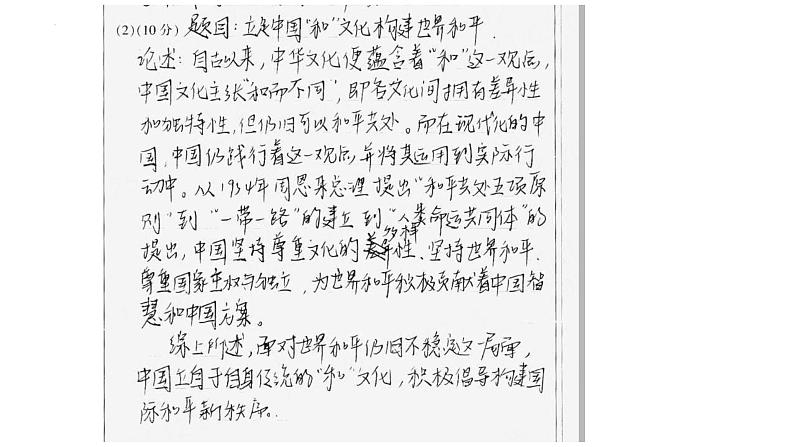 (2)(10分) 题目：立足中国"和"文化构建世界和平.
论述：自古以来，中华文化便蕴含着"和"这一观后，
中国文化主张"和而不同"，即各文化间拥有差异性
和独特性，但仍旧可以和平共处。而在现代化的中
国，中国仍践行着这一观后，并将其运用到实际行
动中。从1954年周恩来总理提出"和平共处五项原
则"到"一带一路"的建立到"人类命运共同体"的
提出，中国坚持尊重文化的多样性、坚持世界和平.
尊重国家主权与独立，为世界和平积极贡献着中国智
慧和中国方案。
综上所述，面对世界和平仍旧不稳定这一局面，
中国立自于自身传统的"和"文化，积极倡导构建国
际和平新秩序。